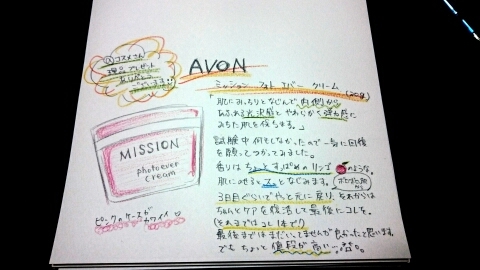 @コスメさん
現品プレゼント
ありがとう
ございます!!
AVON
ミッション フォト エバー クリーム
(20g)
「肌にぴったりとなじんで、内側から
あふれる光沢感と やわらかく 弾む感に
みちた肌を保ちます。」
試験中 何もしなかったので 一気に回復
を願ってつかってみました。
香りは ちょっとすっぱめのリンゴ のような。
肌にのせると となじみます。
3日目ぐらいで やっと元に戻り、それからは
ちゃんとケアを復活して最後にコレを。
(それまではコレ1本で!)
最後まではまだいってませんが 良かったと思います。
でも ちょっと 値段が高い…
MISSION
photoever
cream
ピンクのケースがカワイイ